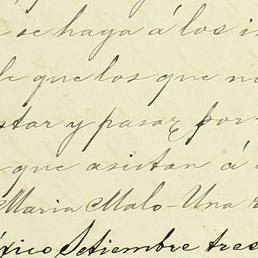 se haga á los i
de que los que n
star y pasar por
que asistan á
Maria Malo - Una
éxico Setiembre tres